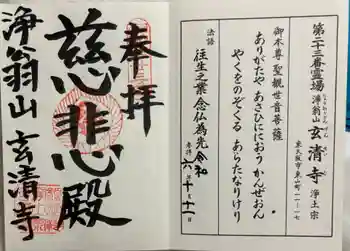 第二十三番霊場 浄翁山 玄清寺 浄土宗
げんせいじ
東大阪市東山町一一-一七
御本尊 聖観世音菩薩
ありがたや あさひににおう かんぜおん
やくをのぞくる あらたなりけり
法語
往生之業 念仏為先
参拝 令和 六年 十月 十一日
奉拝
慈悲心殿
浄翁山 玄清寺